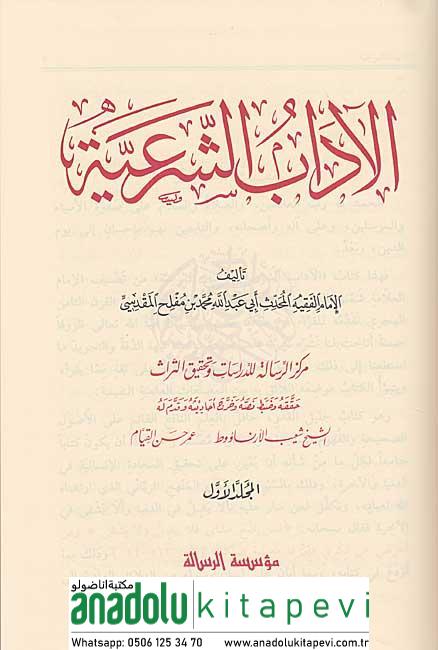 الآدَابُ الشَّرْعِيَّةُ
تَأليفُ
الإمَام الفَقِيه المُحَدِّث أبي عَبْد اللَّه مُحَمَّد بْن مُفْلِح المَقْدِسِيّ
مركز الرسالة للدراسات وتحقيق التراث
حَقَّقَهُ وَضَبَطَ نَصَّهُ وَخَرَّجَ أَحَادِيثَهُ وَقَدَّمَ لَهُ
الشيخ شعيب الأرناؤوط عمر حسن القيام
المُجَلَّد الأوَّل
مؤسسة الرسالة
مكتبة اناضولو
anadolu kitapevi
Whatsapp: 0506 125 34 70 www.anadolukitapevi.com.tr